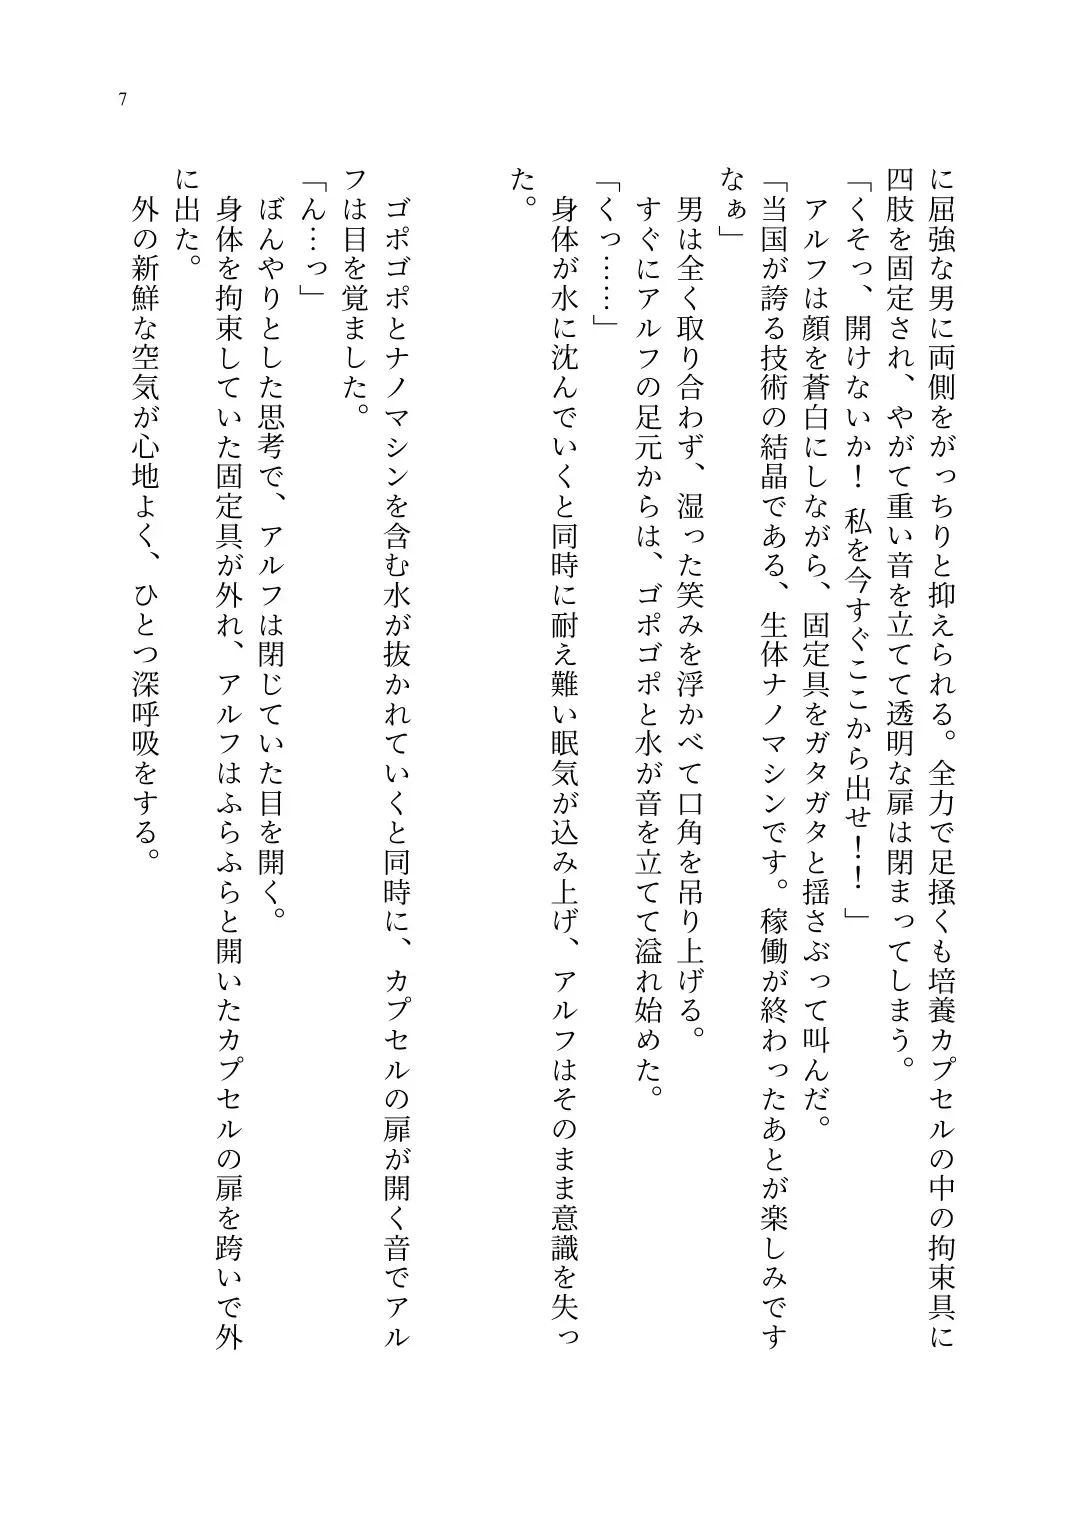 7
に屈強な男に両側をがっちりと抑えられる。全力で足掻くも培養カプセルの中の拘束具に
四肢を固定され、やがて重い音を立てて透明な扉は閉まってしまう。
「くそっ、開けないか！　私を今すぐここから出せ！！」
　アルフは顔を蒼白にしながら、固定具をガタガタと揺さぶって叫んだ。
「当国が誇る技術の結晶である、生体ナノマシンです。稼働が終わったあとが楽しみです
なぁ」
　男は全く取り合わず、湿った笑みを浮かべて口角を吊り上げる。
　すぐにアルフの足元からは、ゴポゴポと水が音を立てて溢れ始めた。
「くっ……」
　身体が水に沈んでいくと同時に耐え難い眠気が込み上げ、アルフはそのまま意識を失っ
た。
　ゴポゴポとナノマシンを含む水が抜かれていくと同時に、カプセルの扉が開く音でアル
フは目を覚ました。
「ん…っ」
　ぼんやりとした思考で、アルフは閉じていた目を開く。
　身体を拘束していた固定具が外れ、アルフはふらふらと開いたカプセルの扉を跨いで外
に出た。
　外の新鮮な空気が心地よく、ひとつ深呼吸をする。